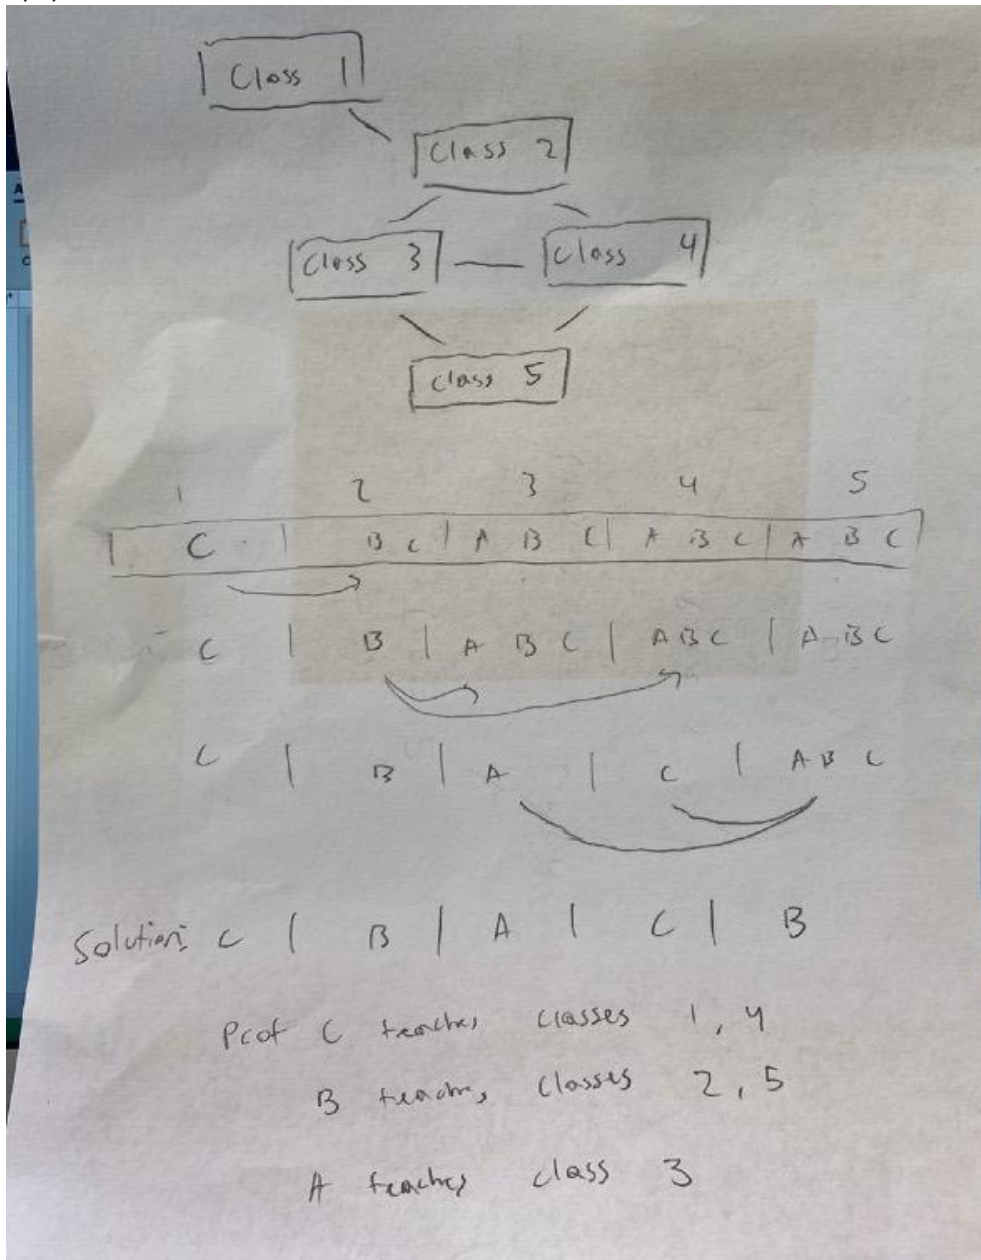 Class 1
Class 2
Class 3 — Class 4
Class 5
1 2 3 4 5
| C | B C | A B C | A B C | A B C |
C | B | A B C | A B C | A B C
C | B | A | C | A B C
Solution: C | B | A | C | B
Prof C teaches classes 1, 4
B teaches classes 2, 5
A teaches class 3